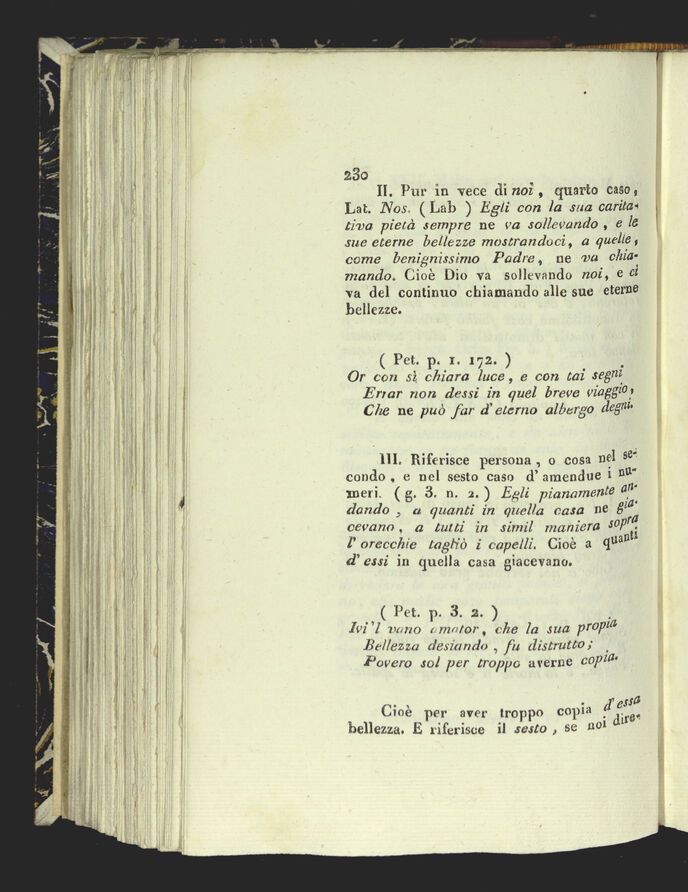 230
II. Pur in vece di noi, quarto caso,
Lat. Nos. ( Lab ) Egli con la sua carita-
tiva pietà sempre ne va sollevando, e le
sue eterne bellezze mostrandoci, a quelle,
come benignissimo Padre, ne va chia-
mando. Cioè Dio va sollevando noi, e ci
va del continuo chiamando alle sue eterne
bellezze.
( Pet. p. 1. 172. )
Or con sì chiara luce, e con tai segni
Errar non dessi in quel breve viaggio,
Che ne può far d'eterno albergo degni.
III. Riferisce persona, o cosa nel se-
condo, e nel sesto caso d'amendue i nu-
meri. (g. 3. n. 2.) Egli pianamente an-
dando, a quanti in quella casa ne gia-
cevano, a tutti in simil maniera sopra
l'orecchie tagliò i capelli. Cioè a quanti
d'essi in quella casa giacevano.
( Pet. p. 3. 2. )
Ivi'l vano amator, che la sua propia
Bellezza desiando, fu distrutto;
Povero sol per troppo averne copia.
Cioè per aver troppo copia d'essa
bellezza. E riferisce il sesto, se noi dire-